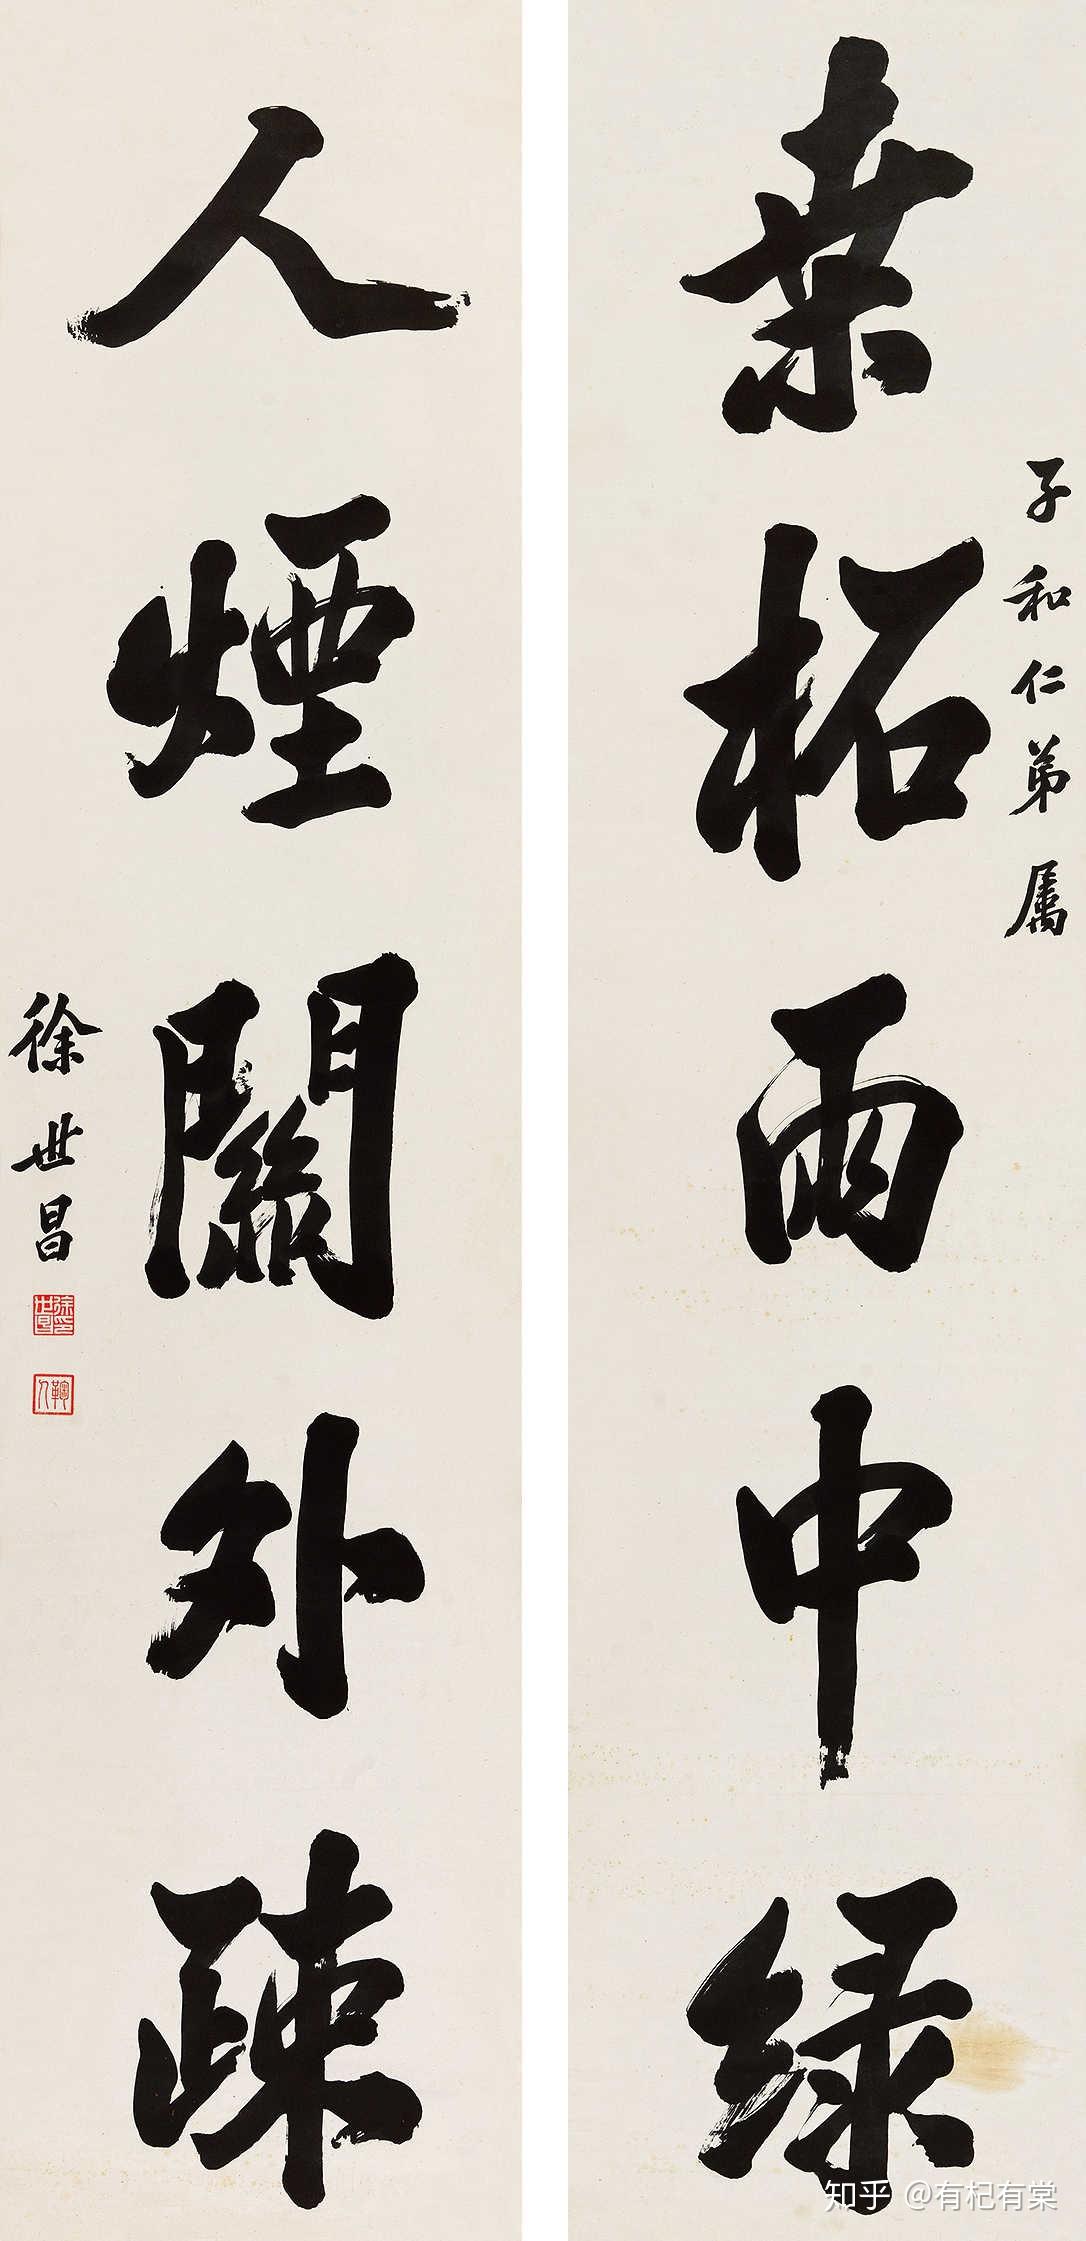 子和仁弟属
桒柘雨中緑
人煙關外疎
徐世昌
徐世昌印
鞠人
知乎 @有杞有棠